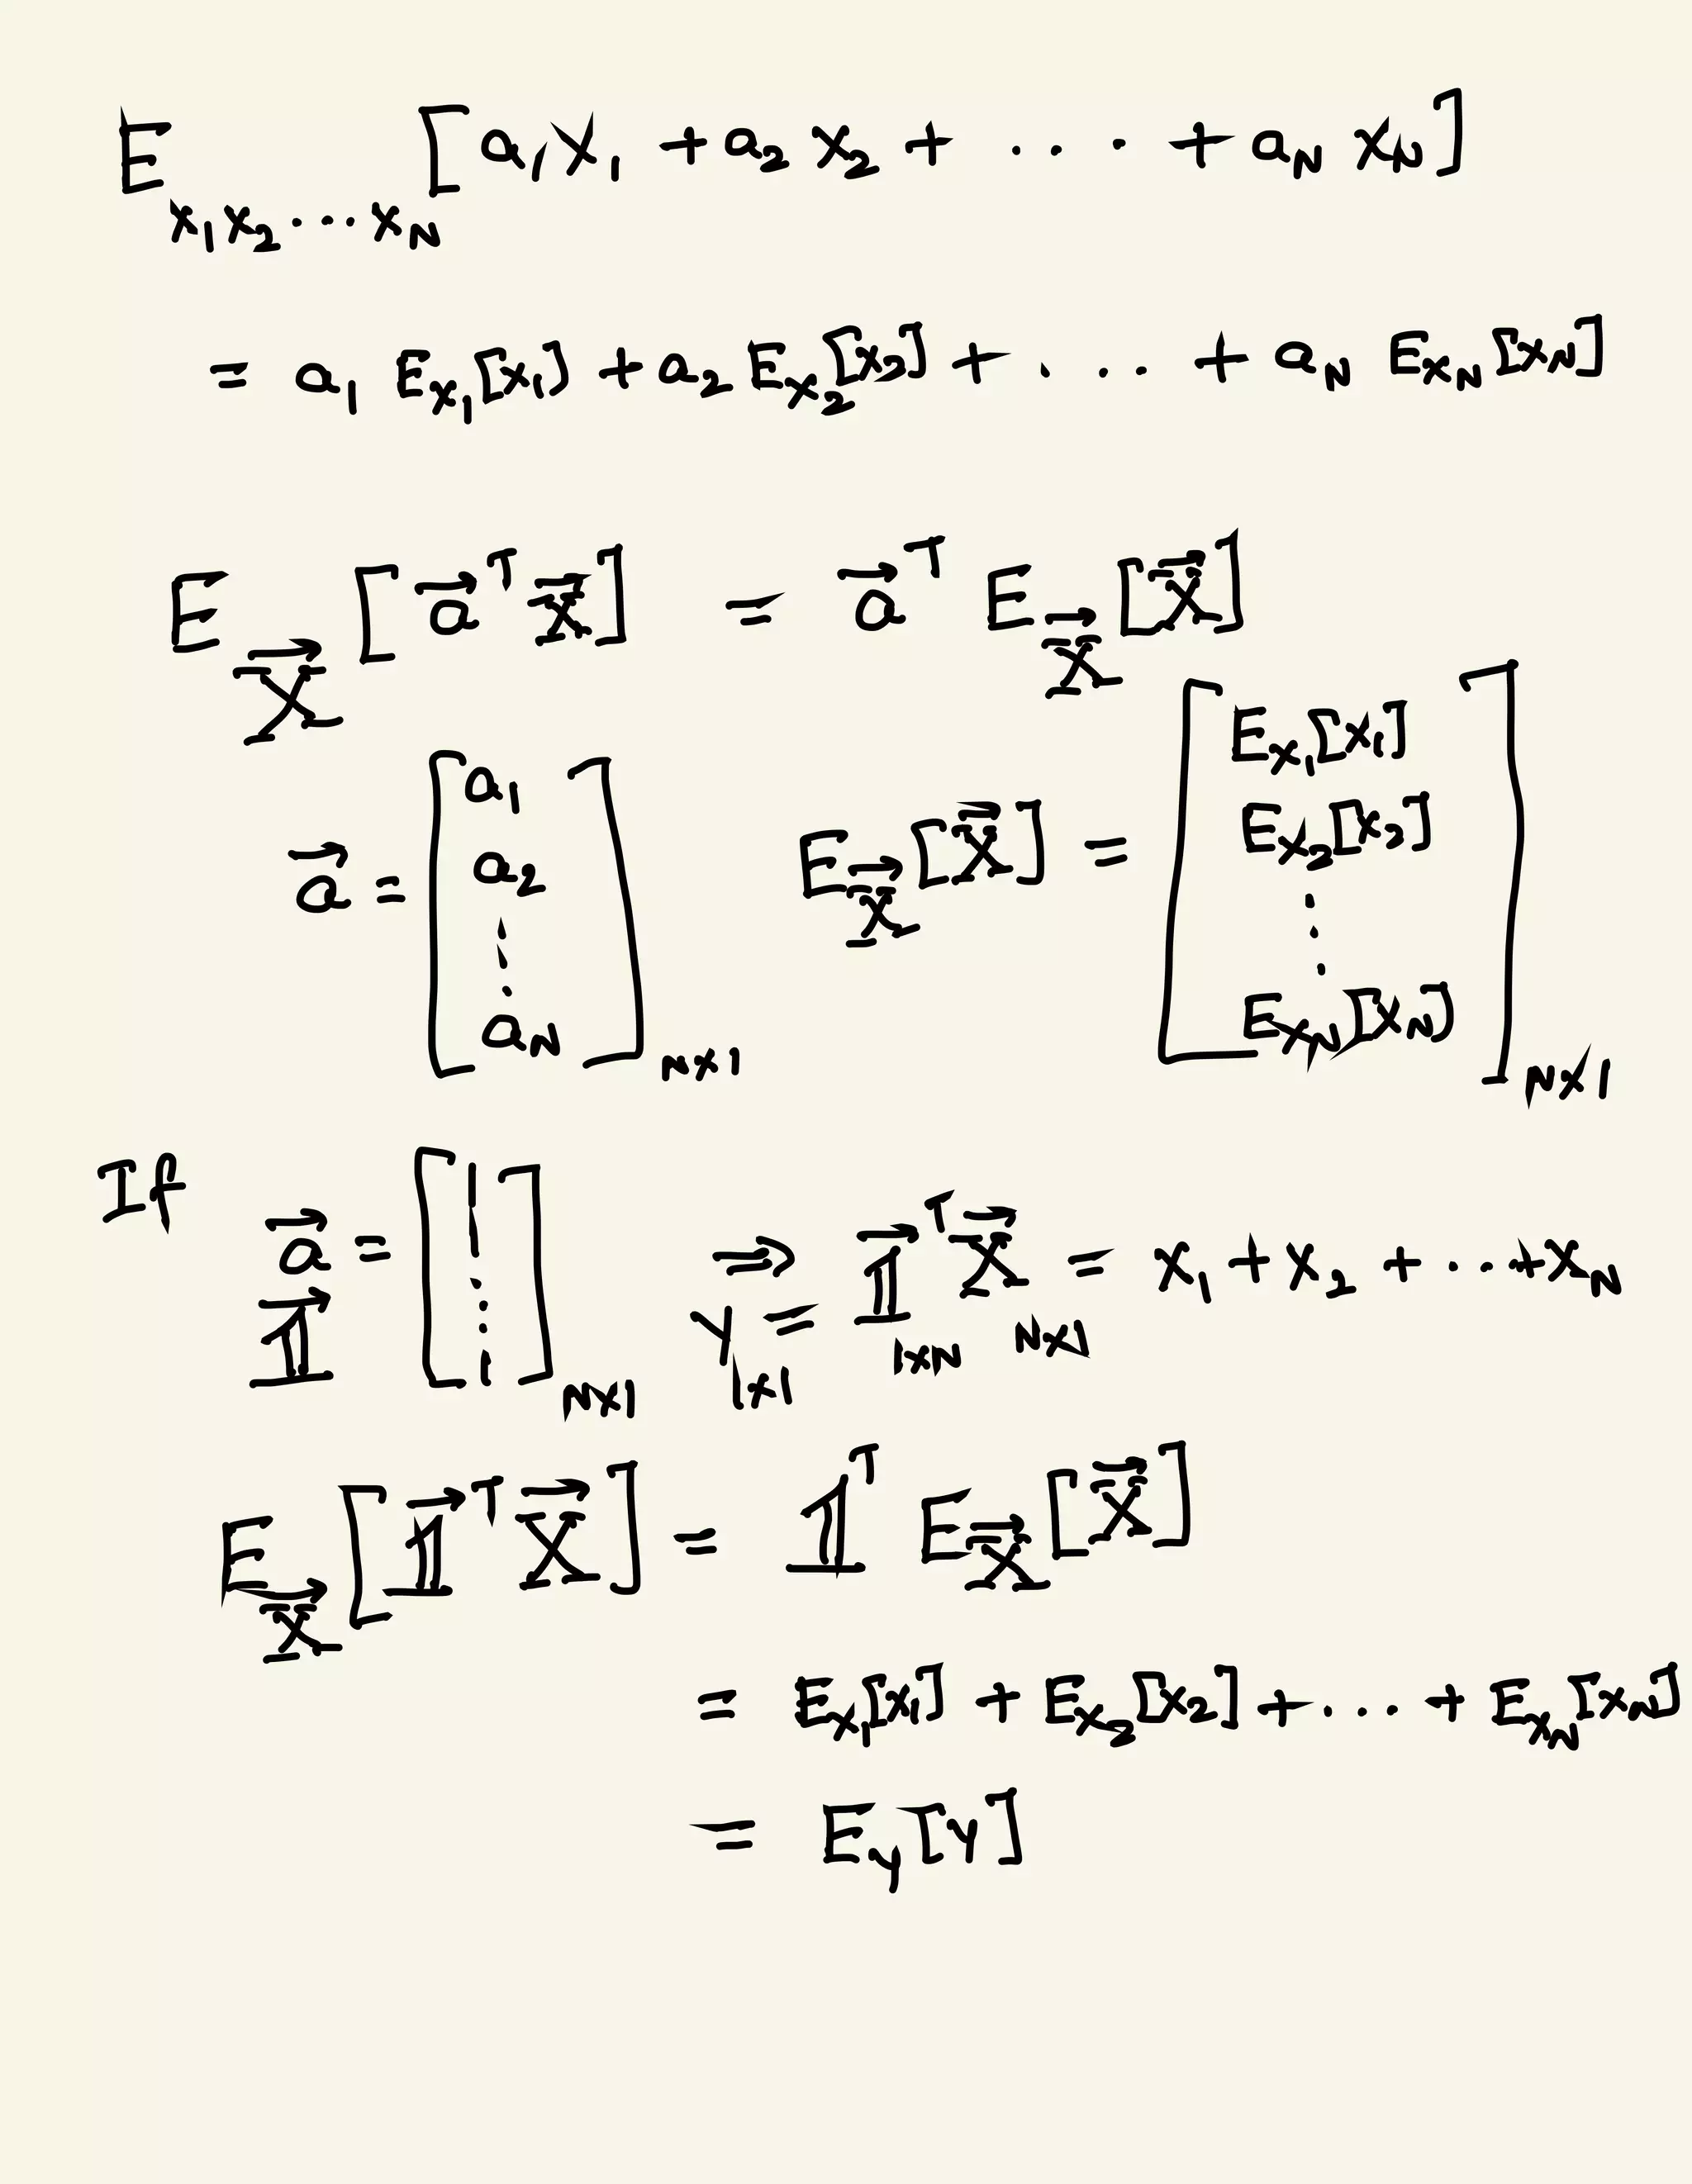 E_{X₁X₂...X_N} [a₁X₁ + a₂X₂ + ... + a_N X_N]
= a₁ E_{X₁}[X₁] + a₂ E_{X₂}[X₂] + ... + a_N E_{X_N}[X_N]
E_{\vec{X}} [\vec{a}^T \vec{X}] = \vec{a}^T E_{\vec{X}} [\vec{X}]
\vec{a} = [a₁ a₂ ⋮ a_N]_{N×1} E_{\vec{X}}[\vec{X}] = [E_{X₁}[X₁] E_{X₂}[X₂] ⋮ E_{X_N}[X_N]]_{N×1}
If \vec{a} = [1 1 ⋮ 1]_{N×1} ⇒ \vec{𝟙}^T \vec{X} = X₁ + X₂ + ... + X_N
\vec{𝟙} Y_{1×1} = _{1×N} _{N×1}
E_{\vec{X}} [\vec{𝟙}^T \vec{X}] = 𝟙^T E_{\vec{X}} [\vec{X}]
= E_{X₁}[X₁] + E_{X₂}[X₂] + ... + E_{X_N}[X_N]
= E_Y[Y]